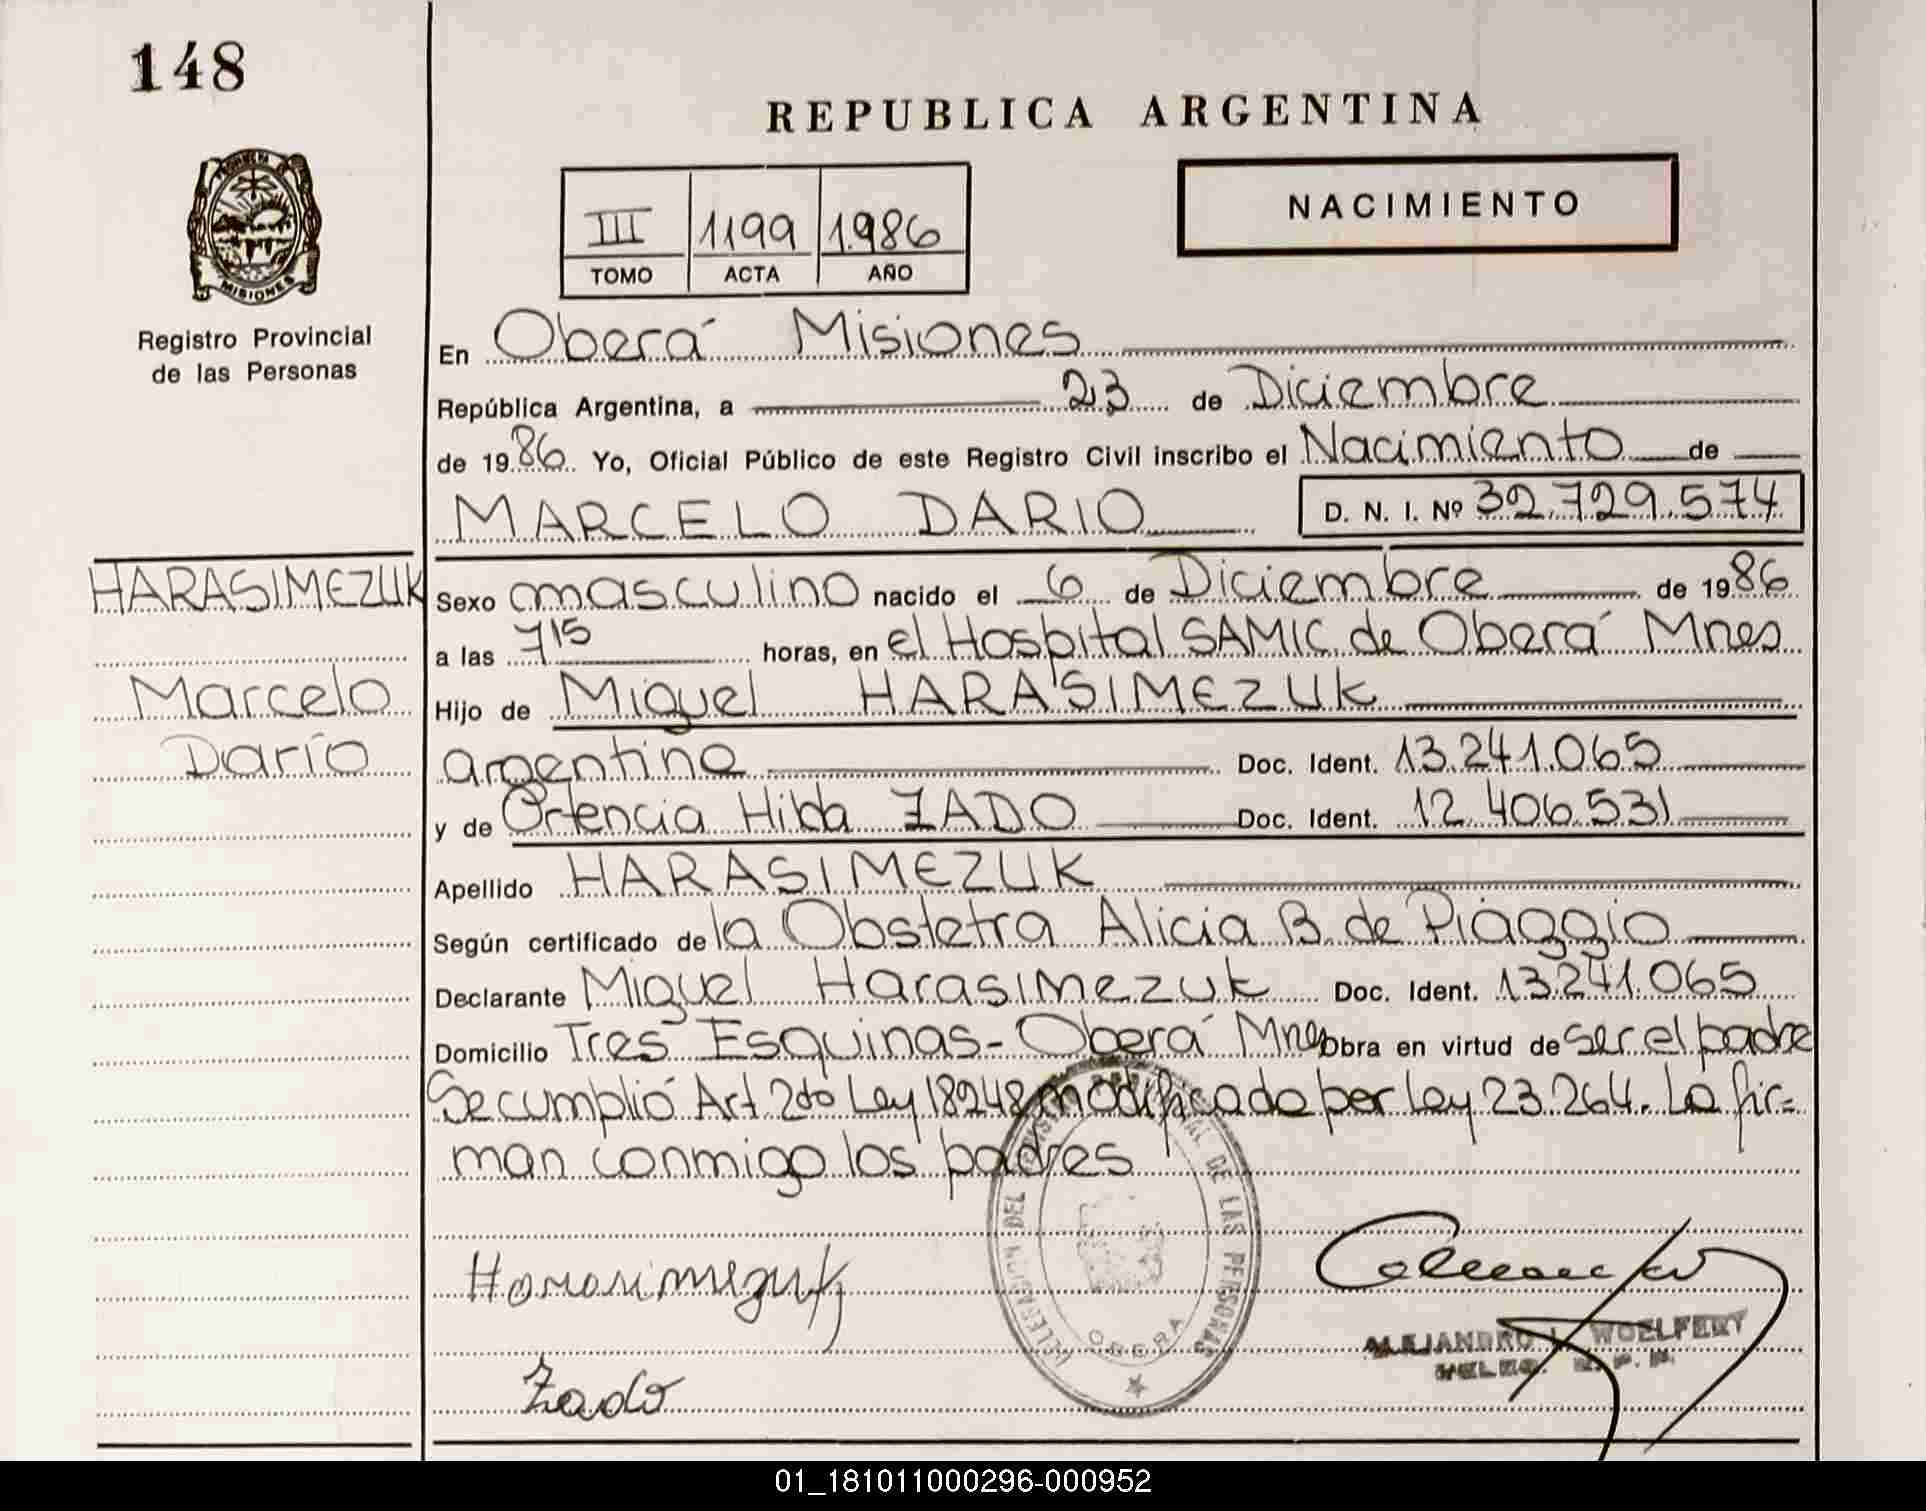 148
REPUBLICA ARGENTINA
NACIMIENTO
III 1199 1986
TOMO ACTA AÑO
MISIONES
Registro Provincial
de las Personas
En Oberá Misiones
República Argentina, a 23 de Diciembre
de 1986 Yo, Oficial Público de este Registro Civil inscribo el Nacimiento de
MARCELO DARIO D. N. I. Nº 32.729.574
HARASIMEZUK
Marcelo
Darío
Sexo masculino nacido el 6 de Diciembre de 1986
a las 7 15 horas, en el Hospital SAMIC de Oberá Mnes
Hijo de Miguel HARASIMEZUK
argentino Doc. Ident. 13.241.065
y de Ortencia Hilda ZADO Doc. Ident. 12.406.531
Apellido HARASIMEZUK
Según certificado de la Obstetra Alicia B. de Piaggio
Declarante Miguel Harasimezuk Doc. Ident. 13.241.065
Domicilio Tres Esquinas - Oberá Mnes Obra en virtud de ser el padre
Se cumplió Art 2do Ley 18248 modificado por Ley 23.264. La fir=
man conmigo los padres
DELEGACION DEL REGISTRO PROVINCIAL DE LAS PERSONAS
OBERA
Harasimezuk
Zado
ALEJANDRO WOELFERT
DELEG. R. P. P.
01_181011000296-000952